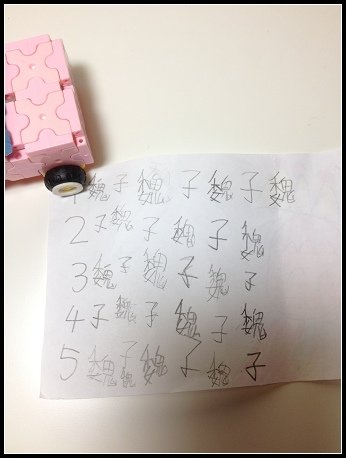 1魏子魏子魏子魏
2子魏子魏子魏
3魏子魏子魏子
4子魏子魏子魏
5魏子魏魏子魏子